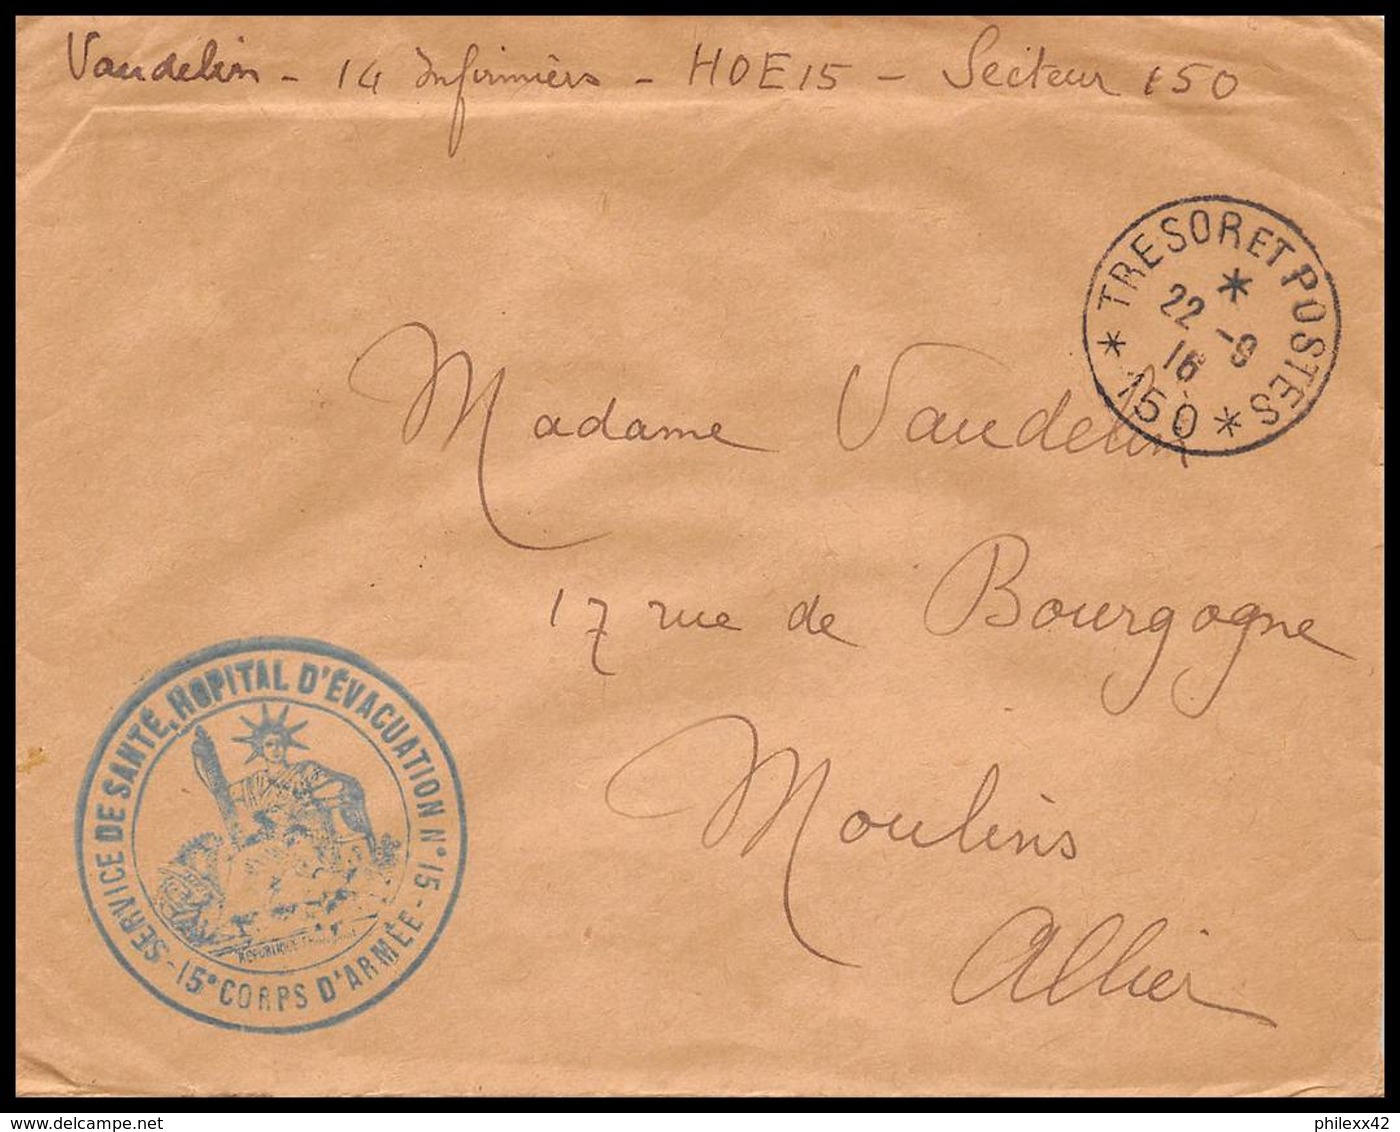 Vaudelin - 14 Infirmiers - HOE15 - Secteur 150
* TRESOR ET POSTES *
*
22 -9
16
150
Madame Vaudelin
17 rue de Bourgogne
Moulins
Allier
SERVICE DE SANTÉ, HOPITAL D'ÉVACUATION N°15 -
- 15e CORPS D'ARMÉE -
REPUBLIQUE FRANÇAISE
philexx42